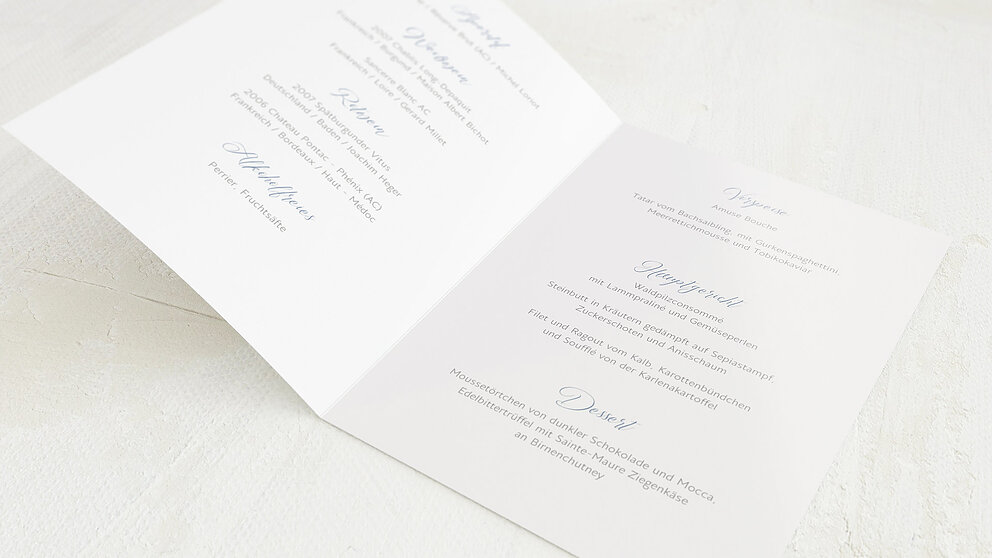 Aperitif
Brut (AC) / Michel Loriot
Weißwein
2007 Chablis Long Depaquit
Frankreich / Burgund / Maison Albert Bichot
Sancerre Blanc AC
Frankreich / Loire / Gerard Millet
Rotwein
2007 Spätburgunder Vitus
Deutschland / Baden / Joachim Heger
2006 Chateau Pontac - Phénix (AC)
Frankreich / Bordeaux / Haut - Médoc
Alkoholfreies
Perrier, Fruchtsäfte
Vorspeise
Amuse Bouche
Tatar vom Bachsaibling, mit Gurkenspaghettini,
Meerrettichmousse und Tobikokaviar
Hauptgericht
Waldpilzconsommé
mit Lammpraliné und Gemüseperlen
Steinbutt in Kräutern gedämpft auf Sepiastampf,
Zuckerschoten und Anisschaum
Filet und Ragout vom Kalb, Karottenbündchen
und Soufflé von der Karlenakartoffel
Dessert
Moussetörtchen von dunkler Schokolade und Mocca,
Edelbittertrüffel mit Sainte-Maure Ziegenkäse
an Birnenchutney